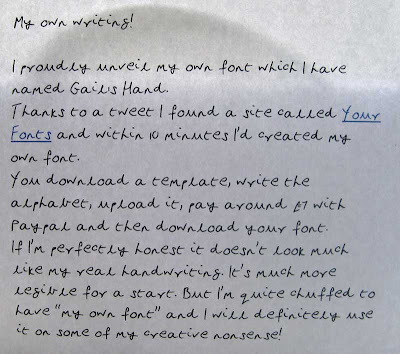 My own writing!
I proudly unveil my own font which I have
named Gail's Hand.
Thanks to a tweet I found a site called Your
Fonts and within 10 minutes I'd created my
own font.
You download a template, write the
alphabet, upload it, pay around £7 with
Paypal and then download your font.
If I'm perfectly honest it doesn't look much
like my real handwriting. It's much more
legible for a start. But I'm quite chuffed to
have "my own font" and I will definitely use
it on some of my creative nonsense!